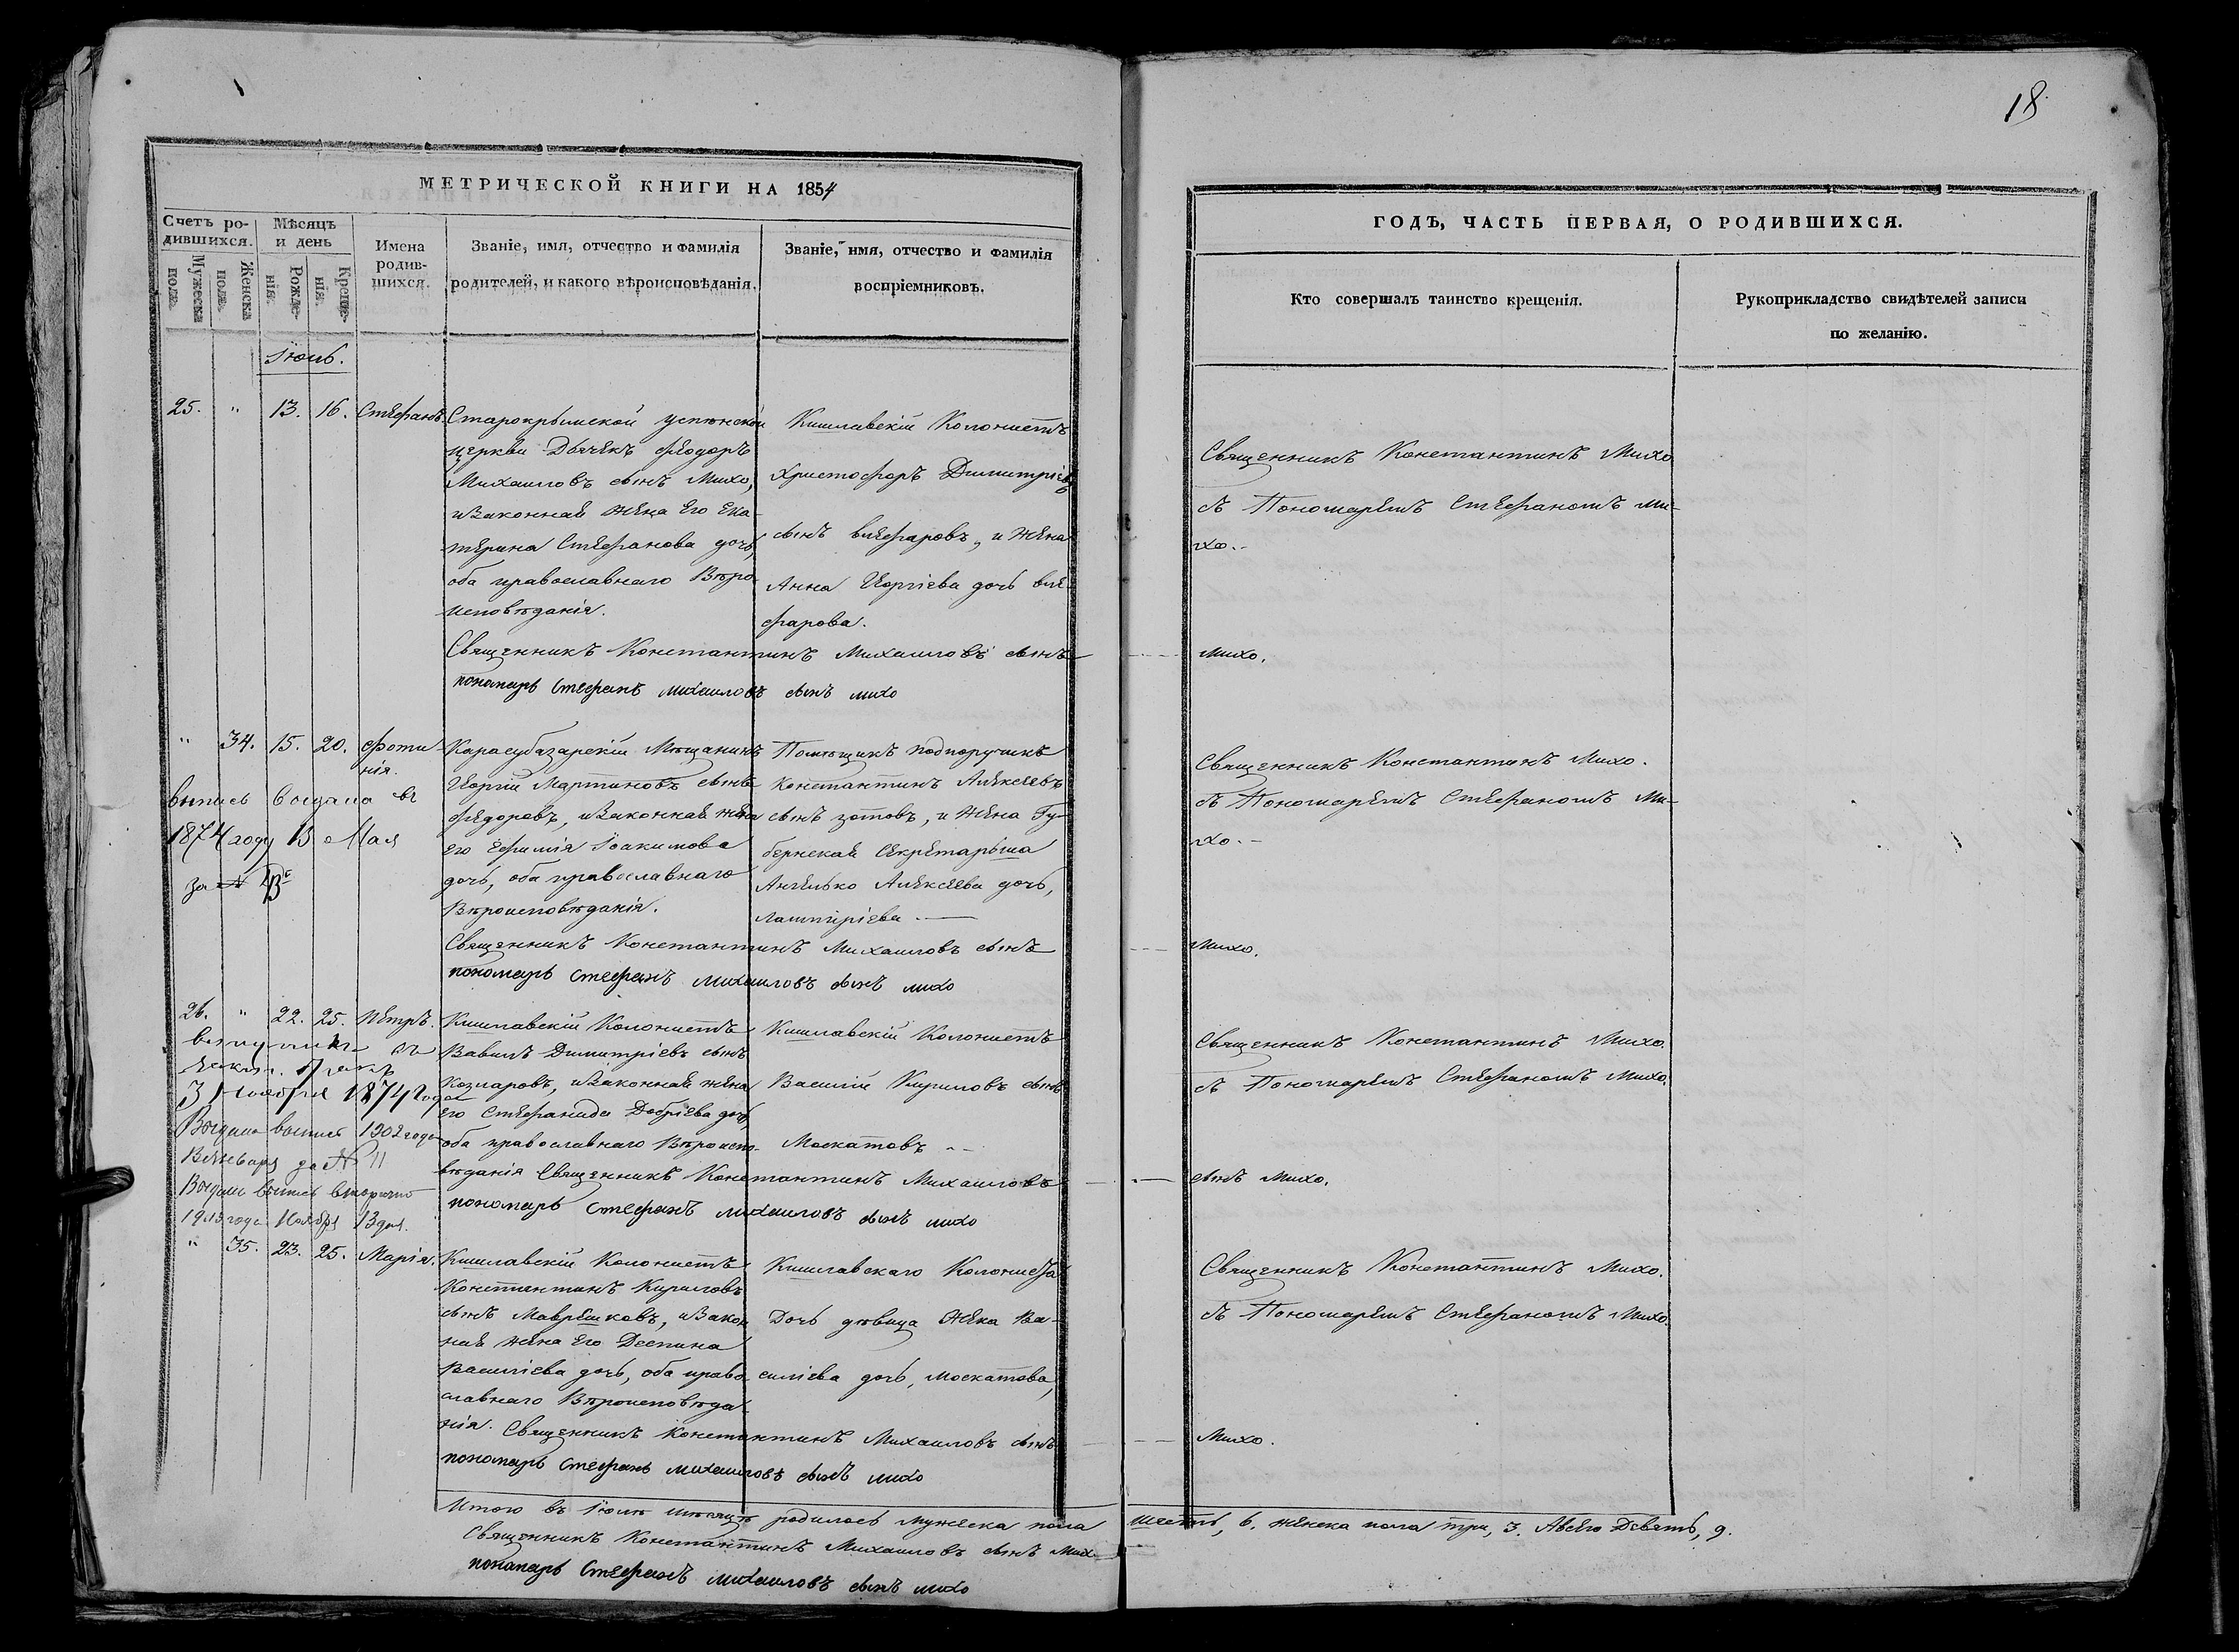 18.
МЕТРИЧЕСКОЙ КНИГИ НА 1854
ГОДЪ, ЧАСТЬ ПЕРВАЯ, О РОДИВШИХСЯ.
Счетъ ро-
дившихся.
Мужеска
полa.
Женска
полa.
Мѣсяцъ
и день
Рожде-
нія.
Креще-
нія.
Имена
родив-
шихся.
Званіе, имя, отчество и фамилія
родителей, и какого вѣроисповѣданія.
Званіе, имя, отчество и фамилія
воспріемниковъ.
Кто совершалъ таинство крещенія.
Рукоприкладство свидѣтелей записи
по желанію.
Іюль.
25. " 13. 16. Стефанъ.
Старокрымской Успѣнской
церкви Дьячекъ Феодоръ
Михаиловъ сынъ Михо,
и Законная жена Его Ека-
терина Стефанова дочь,
оба православнаго Вѣро-
исповѣданія.
Кишлавскій Колонистъ
Христофоръ Димитріевъ
сынъ влефаровъ, и жена
Анна Георгіева дочь вле-
фарова.
Священникъ Константинъ Михо
съ Пономаремъ Стефаномъ Ми-
хо.-
Священникъ Константинъ Михаиловъ сынъ Михо.
пономарь Стефанъ михаиловъ сынъ михо
" 34. 15. 20. Фоти-
нія.
выпись выдана въ
1874 году 13 Мая
за №
Карасубазарскій Мѣщанинъ
Георгій Мартиновъ сынъ
Федоровъ, и Законная жена
Его Ефимія Іоакимова
дочь, оба православнаго
Вѣроисповѣданія.
Помѣщикъ подпоручикъ
Константинъ Алексеевъ
сынъ Зотовъ, и жена Гу-
бернская Секретарьша
Ангелько Алексеева дочь,
Лампиріева.-
Священникъ Константинъ Михо.
съ Пономаремъ Стефаномъ Ми-
хо.-
Священникъ Константинъ Михаиловъ сынъ Михо.
пономарь Стефанъ михаиловъ сынъ михо
26. " 22. 25. Петръ.
3 Ноября 1874 года
Выдана выпись 1902 года
Января за № 11
Выдана выпись вторично
1913 года Ноября 13 дня.
Кишлавскій Колонистъ
Вавилъ Димитріевъ сынъ
Козларовъ, и Законная жена
Его Стефанида Добріева дочь,
оба православнаго Вѣроиспо-
вѣданія Священникъ Константинъ Михаиловъ сынъ Михо.
пономарь Стефанъ михаиловъ сынъ михо
Кишлавскій Колонистъ
Василій Кириловъ сынъ
Москатовъ.-
Священникъ Константинъ Михо.
съ Пономаремъ Стефаномъ Михо.
" 35. 23. 25. Марія.
Кишлавскій Колонистъ
Константинъ Кириловъ
сынъ Маврешковъ, и Закон-
ная жена Его Деспина
Василіева дочь, оба право-
славнаго Вѣроисповѣда-
нія. Священникъ Константинъ Михаиловъ сынъ Михо.
пономарь Стефанъ михаиловъ сынъ михо
Кишлавскаго Колониста
Дочь дѣвица Нека Ва-
силіева дочь, Москатова,
Священникъ Константинъ Михо.
съ Пономаремъ Стефаномъ Михо.
Итого въ Іюлѣ мѣсяцѣ родилось мужеска пола шесть, 6. женска пола три, 3. Авсего Девять, 9.
Священникъ Константинъ Михаиловъ сынъ Михо
пономарь Стефанъ михаиловъ сынъ михо